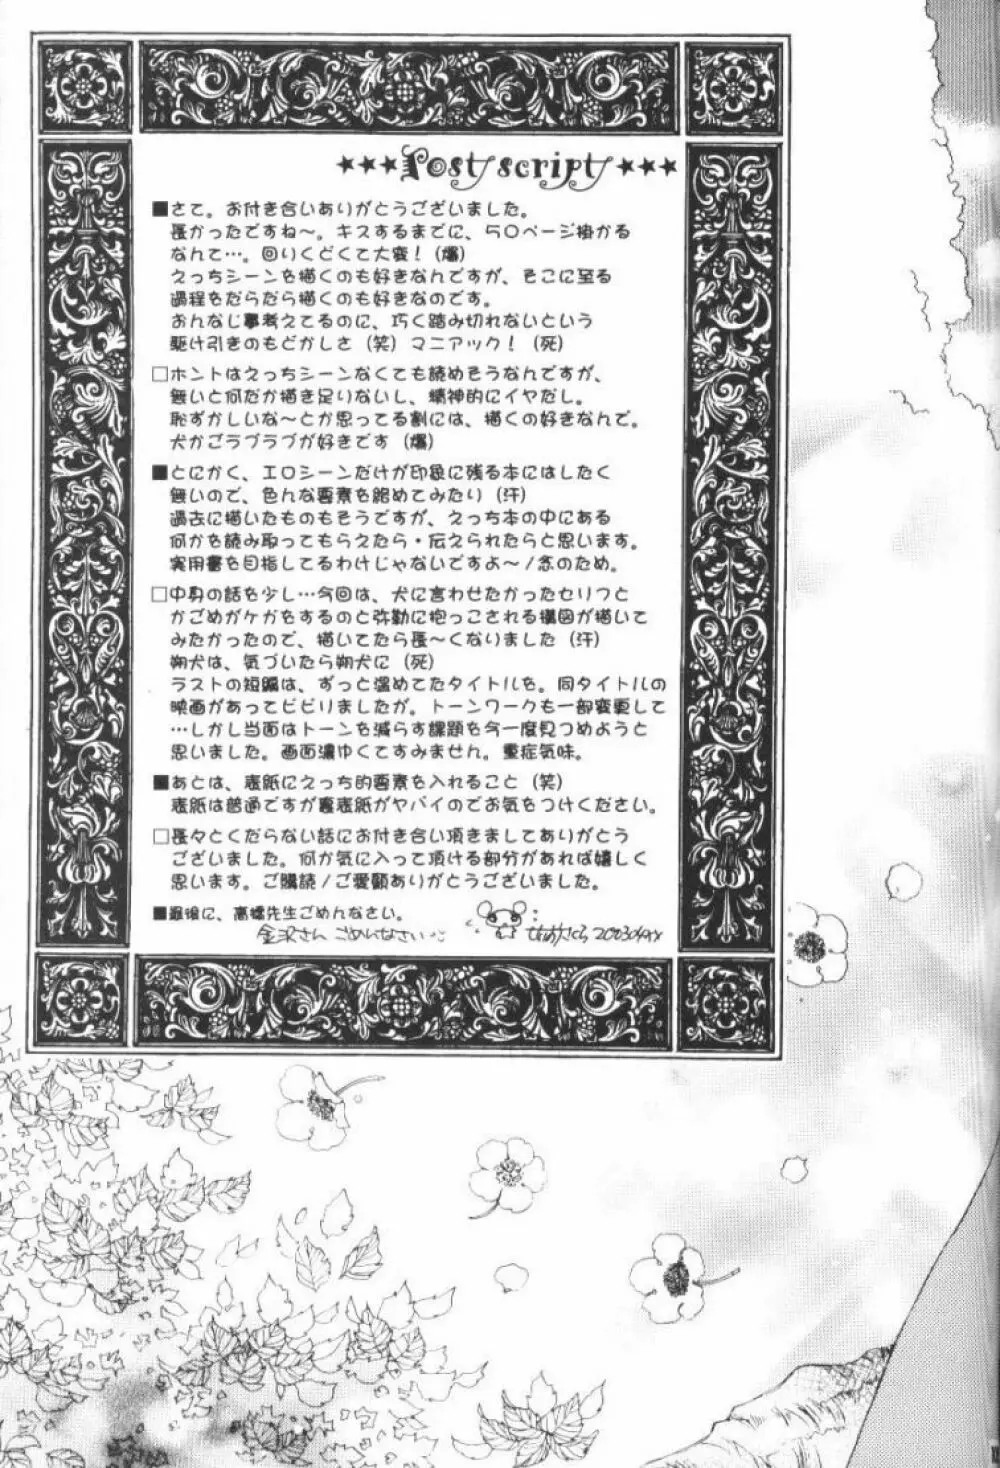 ★★★Postscript★★★
■さて。お付き合いありがとうございました。
長かったですね～。キスするまでに、50ページ掛かる
なんて…。回いくどくて大変！(爆)
えっちシーンを描くのも好きなんですが、そこに至る
過程をだらだら描くのも好きなのです。
おんなじ事考えてるのに、巧く踏み切れないという
駆け引きのもどかしさ（笑）マニアック！（死）
□ホントはえっちシーンなくても読めそうなんですが、
無いと何だか描き足りないし、精神的にイヤだし。
恥ずかしいな～とか思ってる割には、描くの好きなんで。
犬かごラブラブが好きです（爆）
■とにかく、エロシーンだけが印象に残る本にはしたく
無いので、色んな要素を絡めてみたり（汗）
過去に描いたものもそうですが、えっち本の中にある
何かを読み取ってもらえたら・伝えられたらと思います。
実用書を目指してるわけじゃないですよ～/念のため。
□中身の話を少し…今回は、犬に言わせたかったセリフと
かごめがケガをするのと弥勒に抱っこされる構図が描いて
みたかったので、描いてたら長～くなりました（汗）
朔犬は、気づいたら朔犬に（死）
ラストの短編は、ずっと温めてたタイトルを。同タイトルの
映画があってビビりましたが。トーンワークも一部変更して
…しかし当面はトーンを減らす課題を今一度見つめようと
思いました。画面濃ゆくてすみません。重症気味。
■あとは、表紙にえっち的要素を入れること（笑）
表紙は普通ですが裏表紙がヤバイのでお気をつけください。
□長々とくだらない話にお付き合い頂きましてありがとう
ございました。何か気に入って頂ける部分があれば嬉しく
思います。ご購読/ご愛顧ありがとうございました。
■最後に、高橋先生ごめんなさい。
金沢さん ごめんなさい